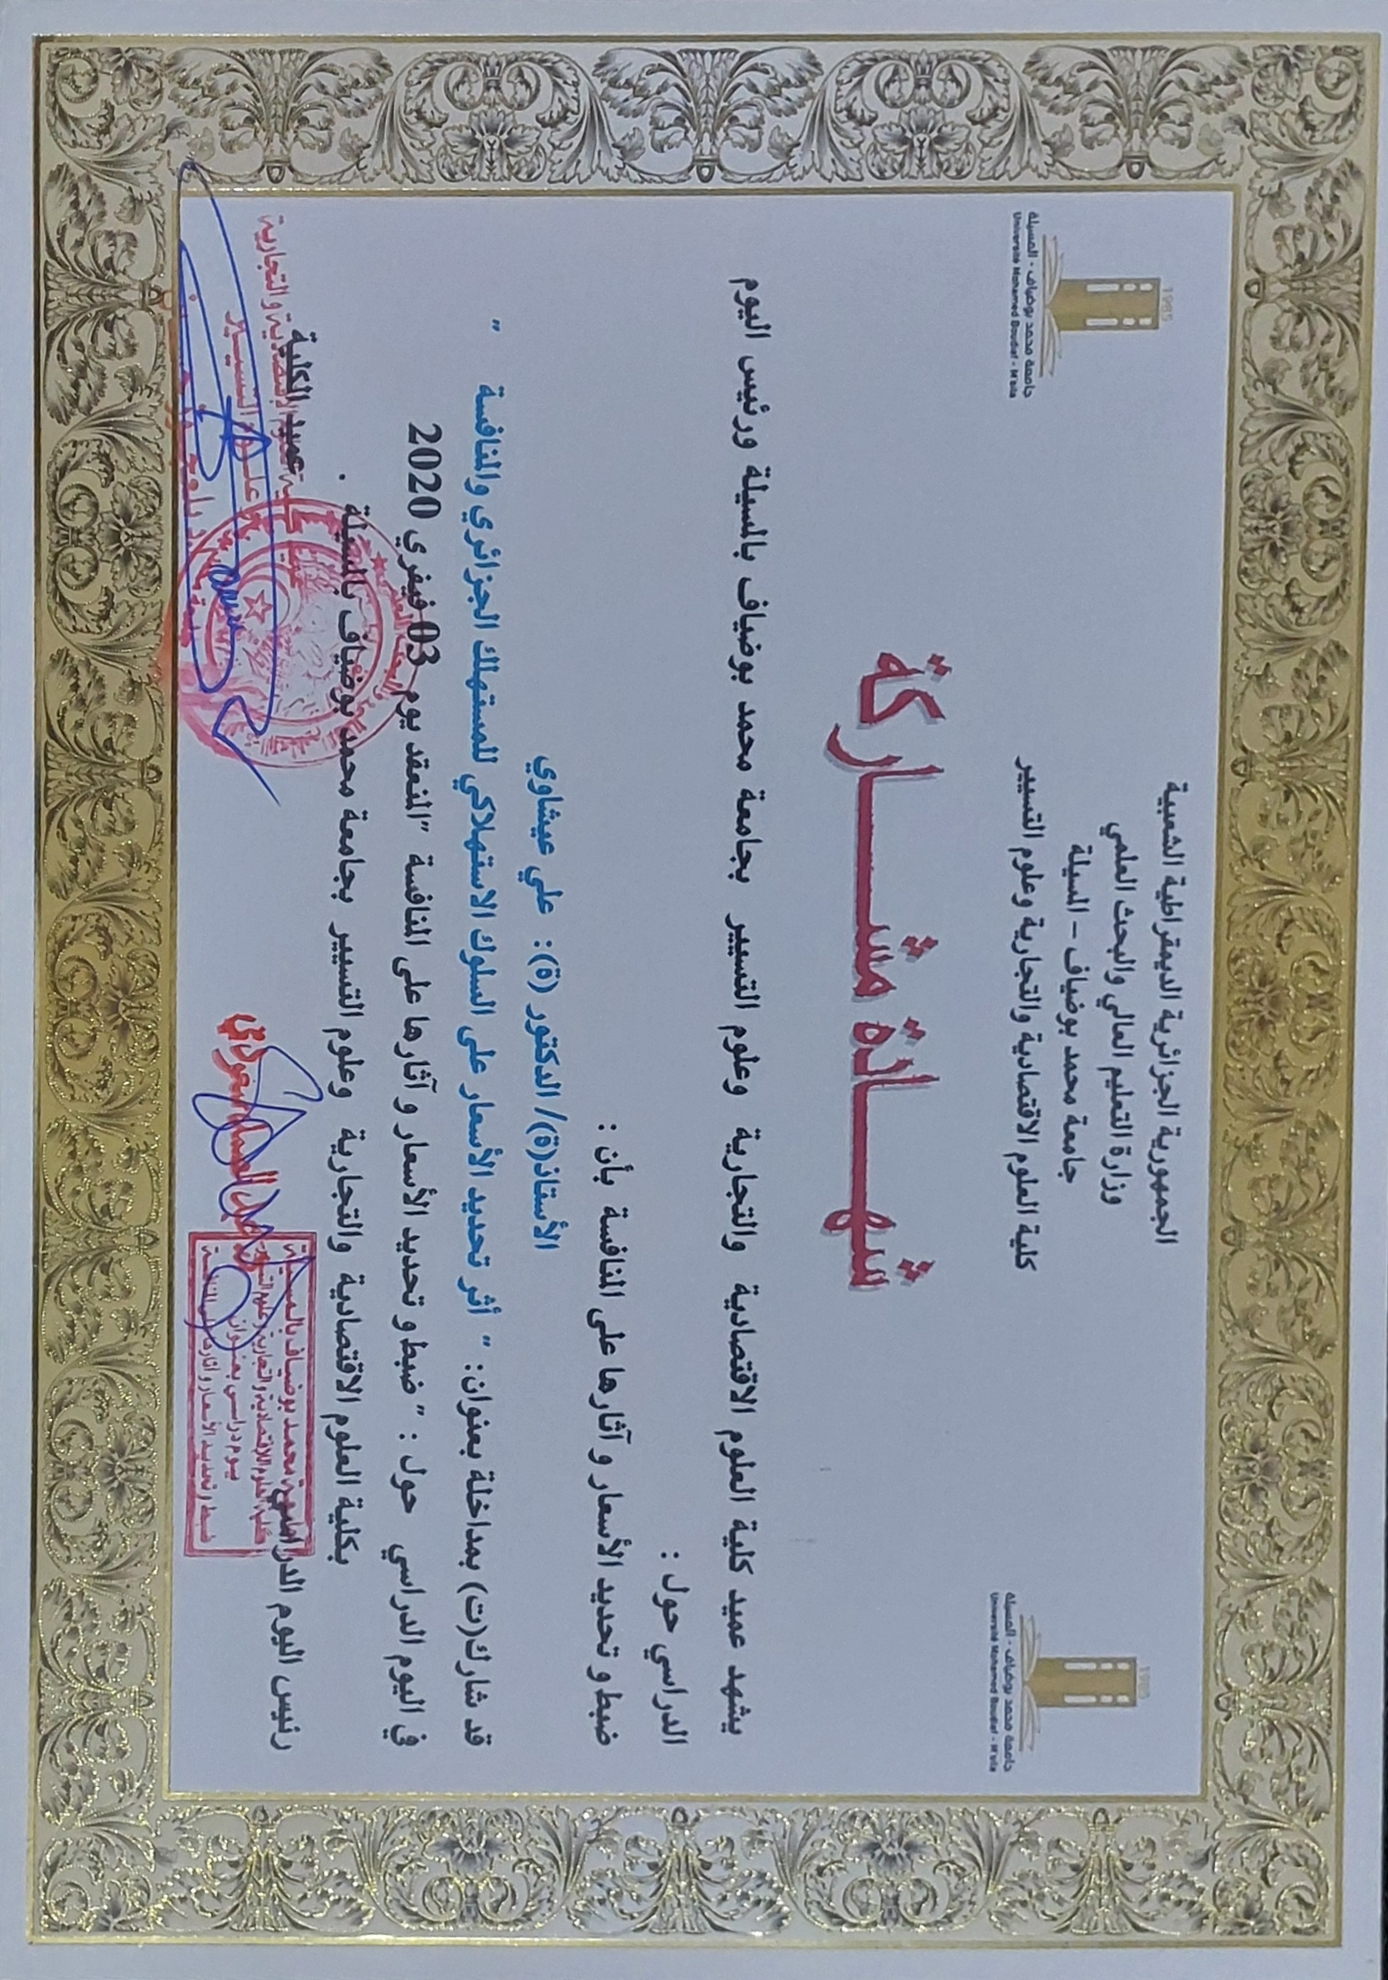 الجمهورية الجزائرية الديمقراطية الشعبية
وزارة التعليم العالي والبحث العلمي
جامعة محمد بوضياف – المسيلة
كلية العلوم الاقتصادية والتجارية وعلوم التسيير
1985
جامعة محمد بوضياف - المسيلة
Université Mohamed Boudiaf - M'sila
1985
جامعة محمد بوضياف - المسيلة
Université Mohamed Boudiaf - M'sila
شهــــادة مشــــاركة
يشهد عميد كلية العلوم الاقتصادية والتجارية وعلوم التسيير بجامعة محمد بوضياف بالمسيلة ورئيس اليوم
الدراسي حول :
ضبط و تحديد الأسعار و آثارها على المنافسة بأن :
الأستاذ(ة)/ الدكتور (ة): علي عيشاوي
قد شارك(ت) بمداخلة بعنوان: " أثر تحديد الأسعار على السلوك الاستهلاكي للمستهلك الجزائري والمنافسة "
في اليوم الدراسي حول : " ضبط و تحديد الأسعار و آثارها على المنافسة "المنعقد يوم 03 فيفري 2020
بكلية العلوم الاقتصادية والتجارية وعلوم التسيير بجامعة محمد بوضياف بالمسيلة .
رئيس اليوم الدراسي
عميد الكلية
محمد بوضياف بالمسيلة
يوم دراسي بعنوان
ضبط و تحديد الأسعار و آثارها